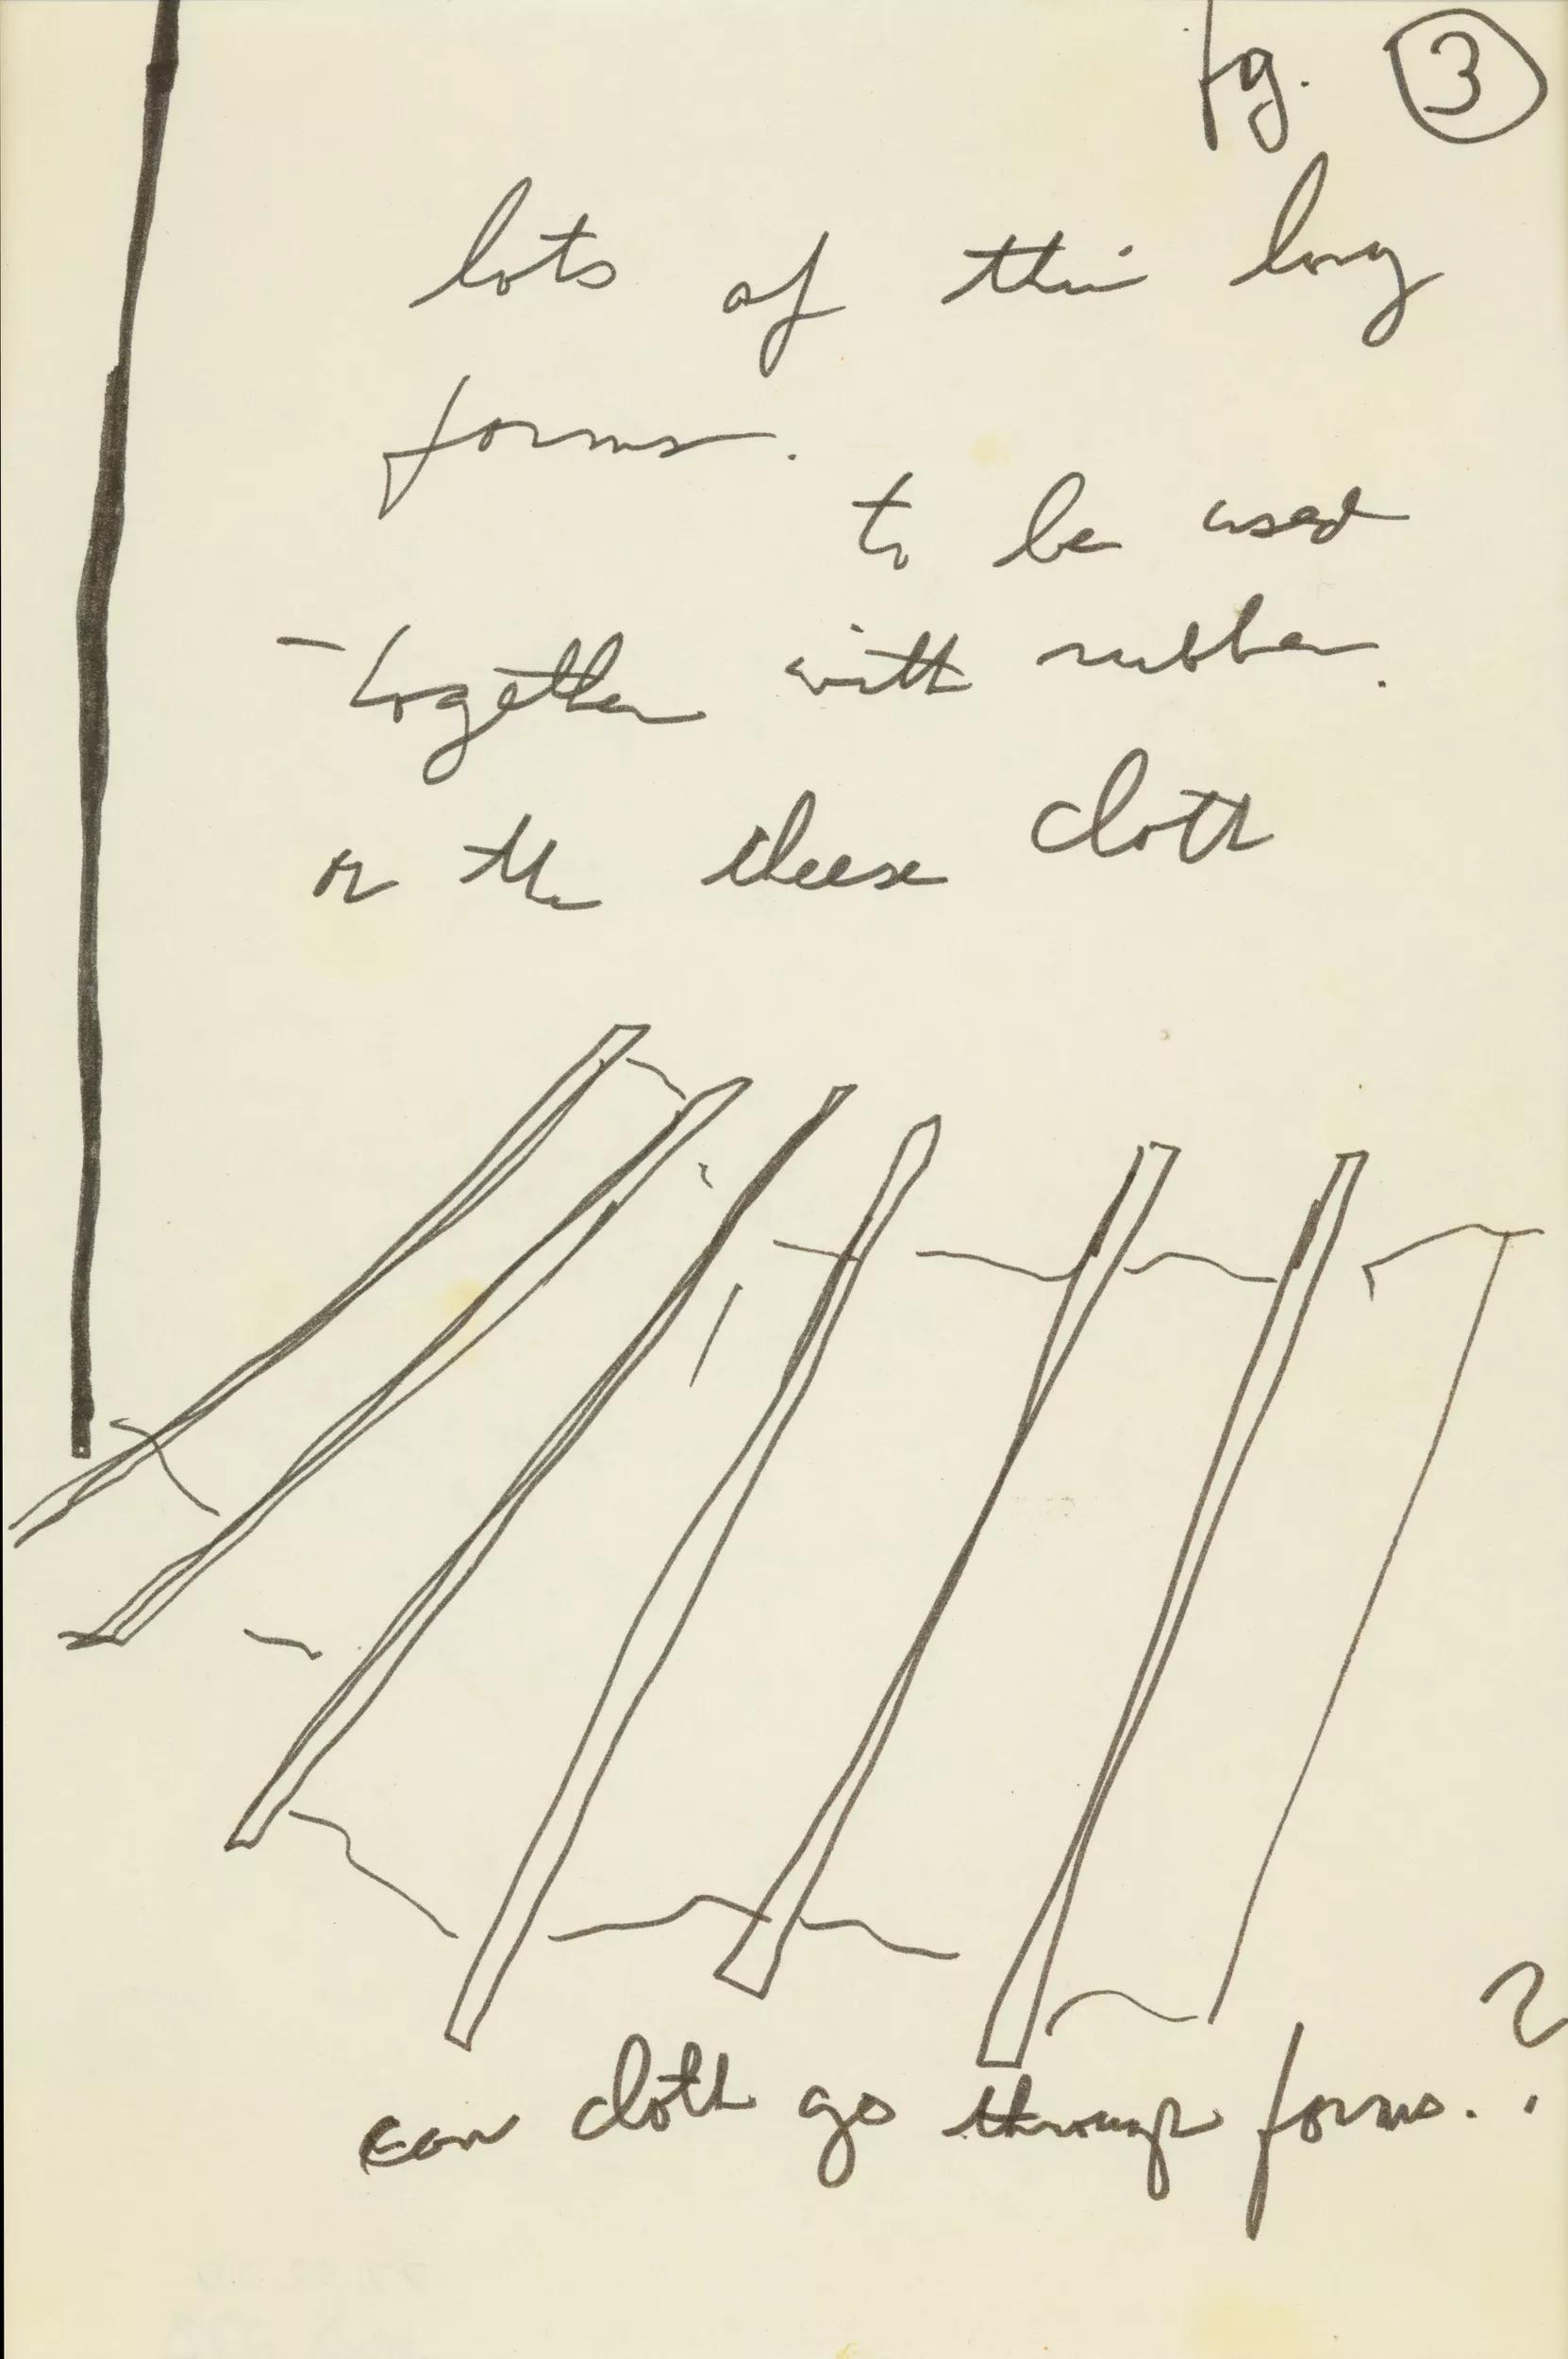 fg. 3
lots of thin long
forms.
to be used
- together with rubber.
or the cheese cloth
can cloth go through forms. ?